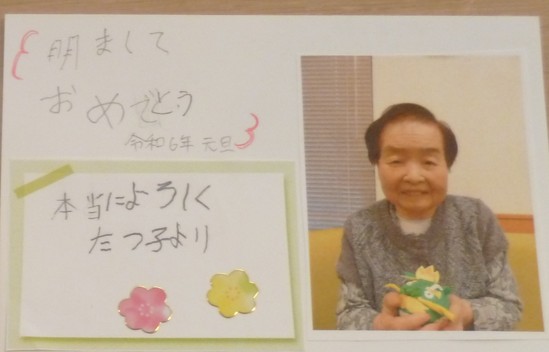 明まして
おめでとう
令和6年 元旦
本当によろしく
たつ子より